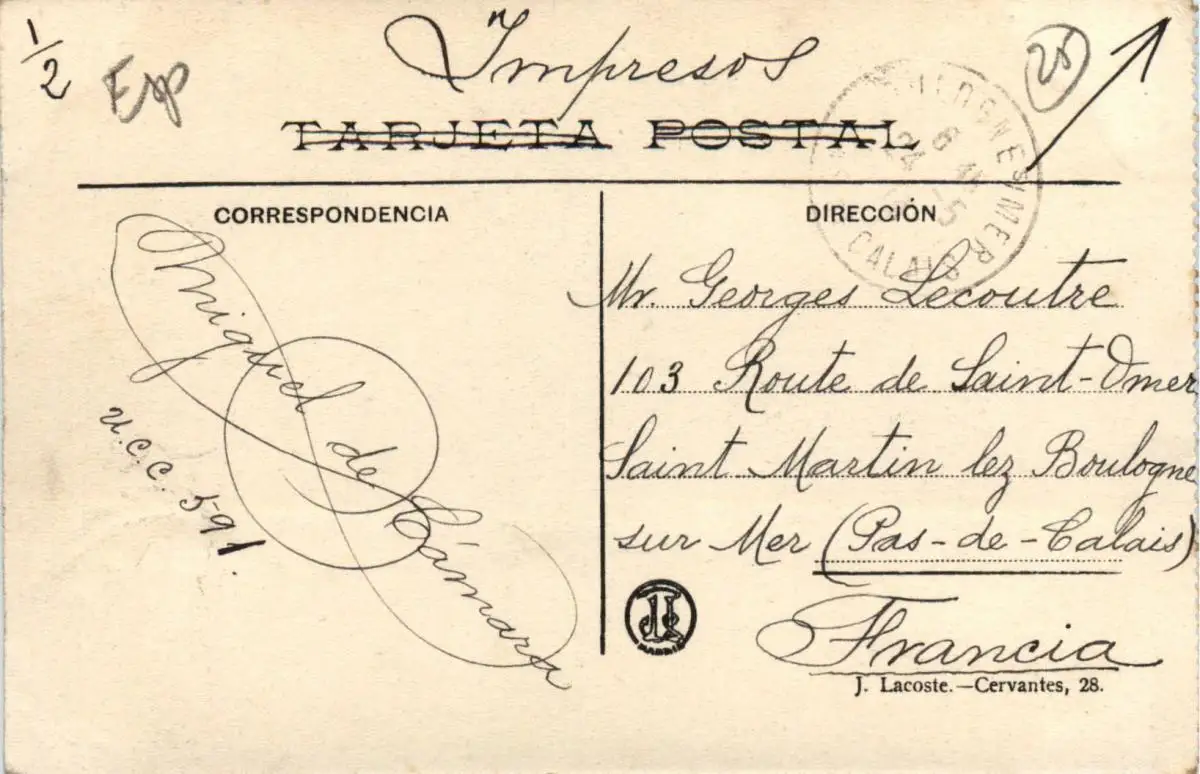 1/2
Esp
Impresos
25
TARJETA POSTAL
CORRESPONDENCIA
DIRECCIÓN
CALAIS
Miguel de Cámara
U.C.C. 591.
Mr. Georges Lecoutre
103 Route de Saint-Omer
Saint-Martin lez Boulogne
sur Mer (Pas-de-Calais)
Francia
MADRID
J. Lacoste.—Cervantes, 28.